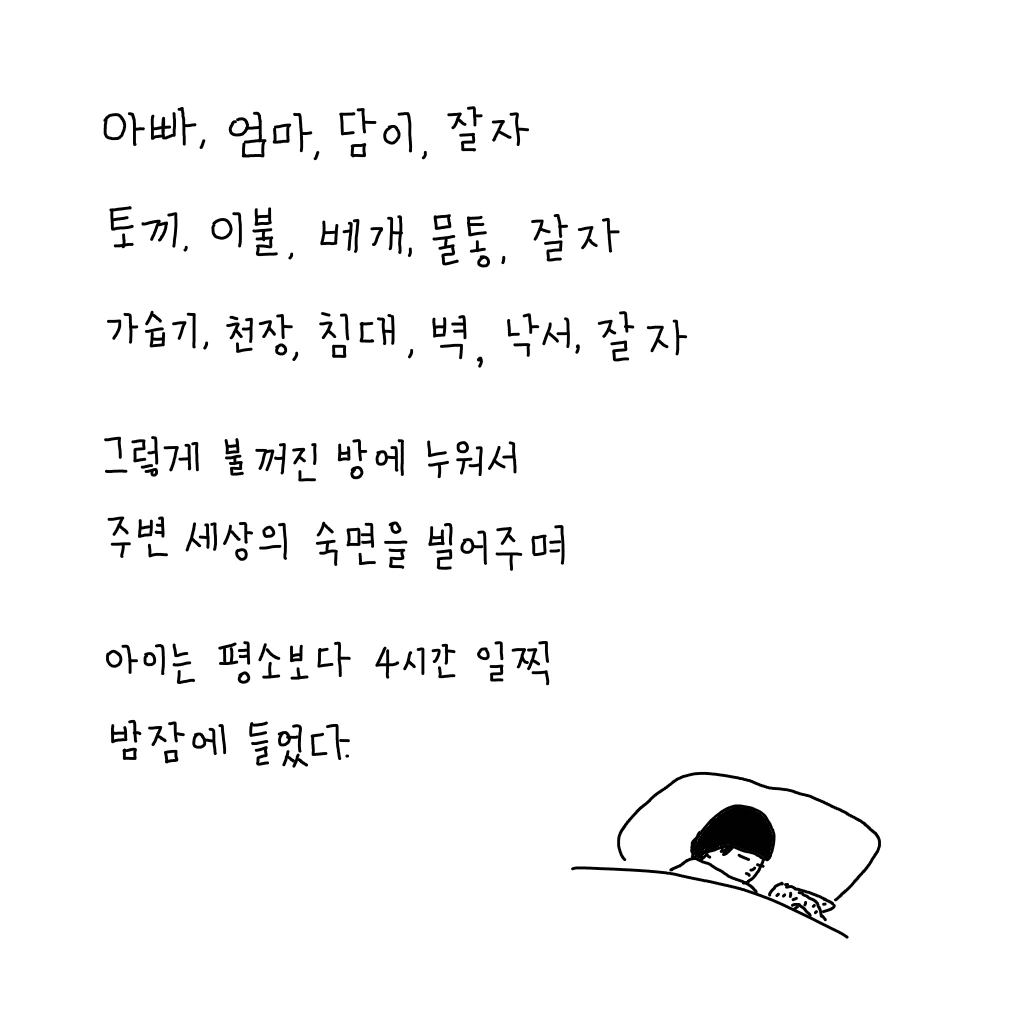 아빠, 엄마, 담이, 잘자
토끼, 이불, 베개, 물통, 잘자
가습기, 천장, 침대, 벽, 낙서, 잘자
그렇게 불꺼진 방에 누워서
주변 세상의 숙면을 빌어주며
아이는 평소보다 4시간 일찍
밤잠에 들었다.